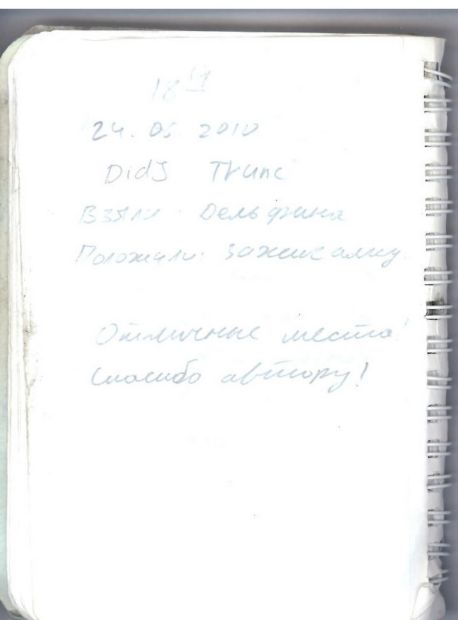 18
24.05 2010
DidJ Trunc
Взяли: Дельфина
Положили: Зажигалку.
Отличные места!
Спасибо автору!